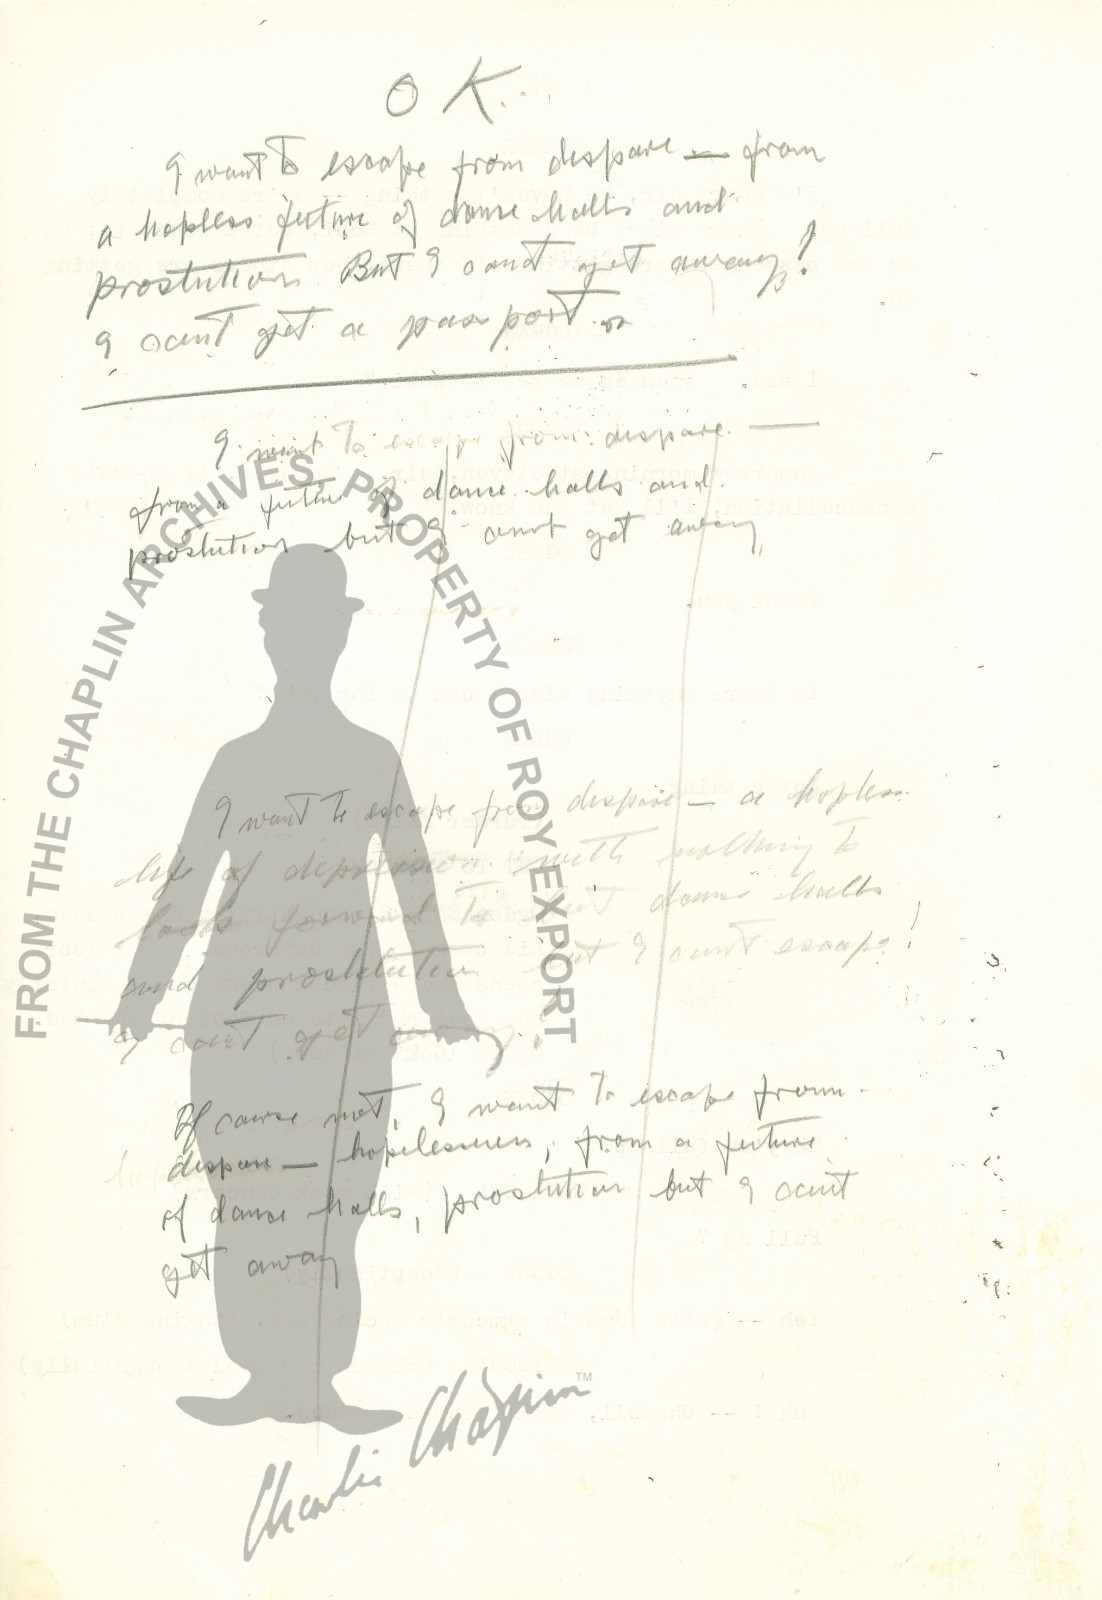 O K.
I want to escape from dispare — from
a hopless future of danse halls and
prostution But I cant get away!
I cant get a passport.
I want to escape from dispare —
from a future of danse halls and
prostution but I cant get away,
I want to escape from dispare — a hopless
life of depression with nothing to
look forward to but danse halls
and prostitution but I cant escape!
I cant get away.
Of course not, I want to escape from
dispare — hopelessness, from a future
of danse halls, prostution but I cant
get away
FROM THE CHAPLIN ARCHIVES. PROPERTY OF ROY EXPORT
Charlie Chaplin™